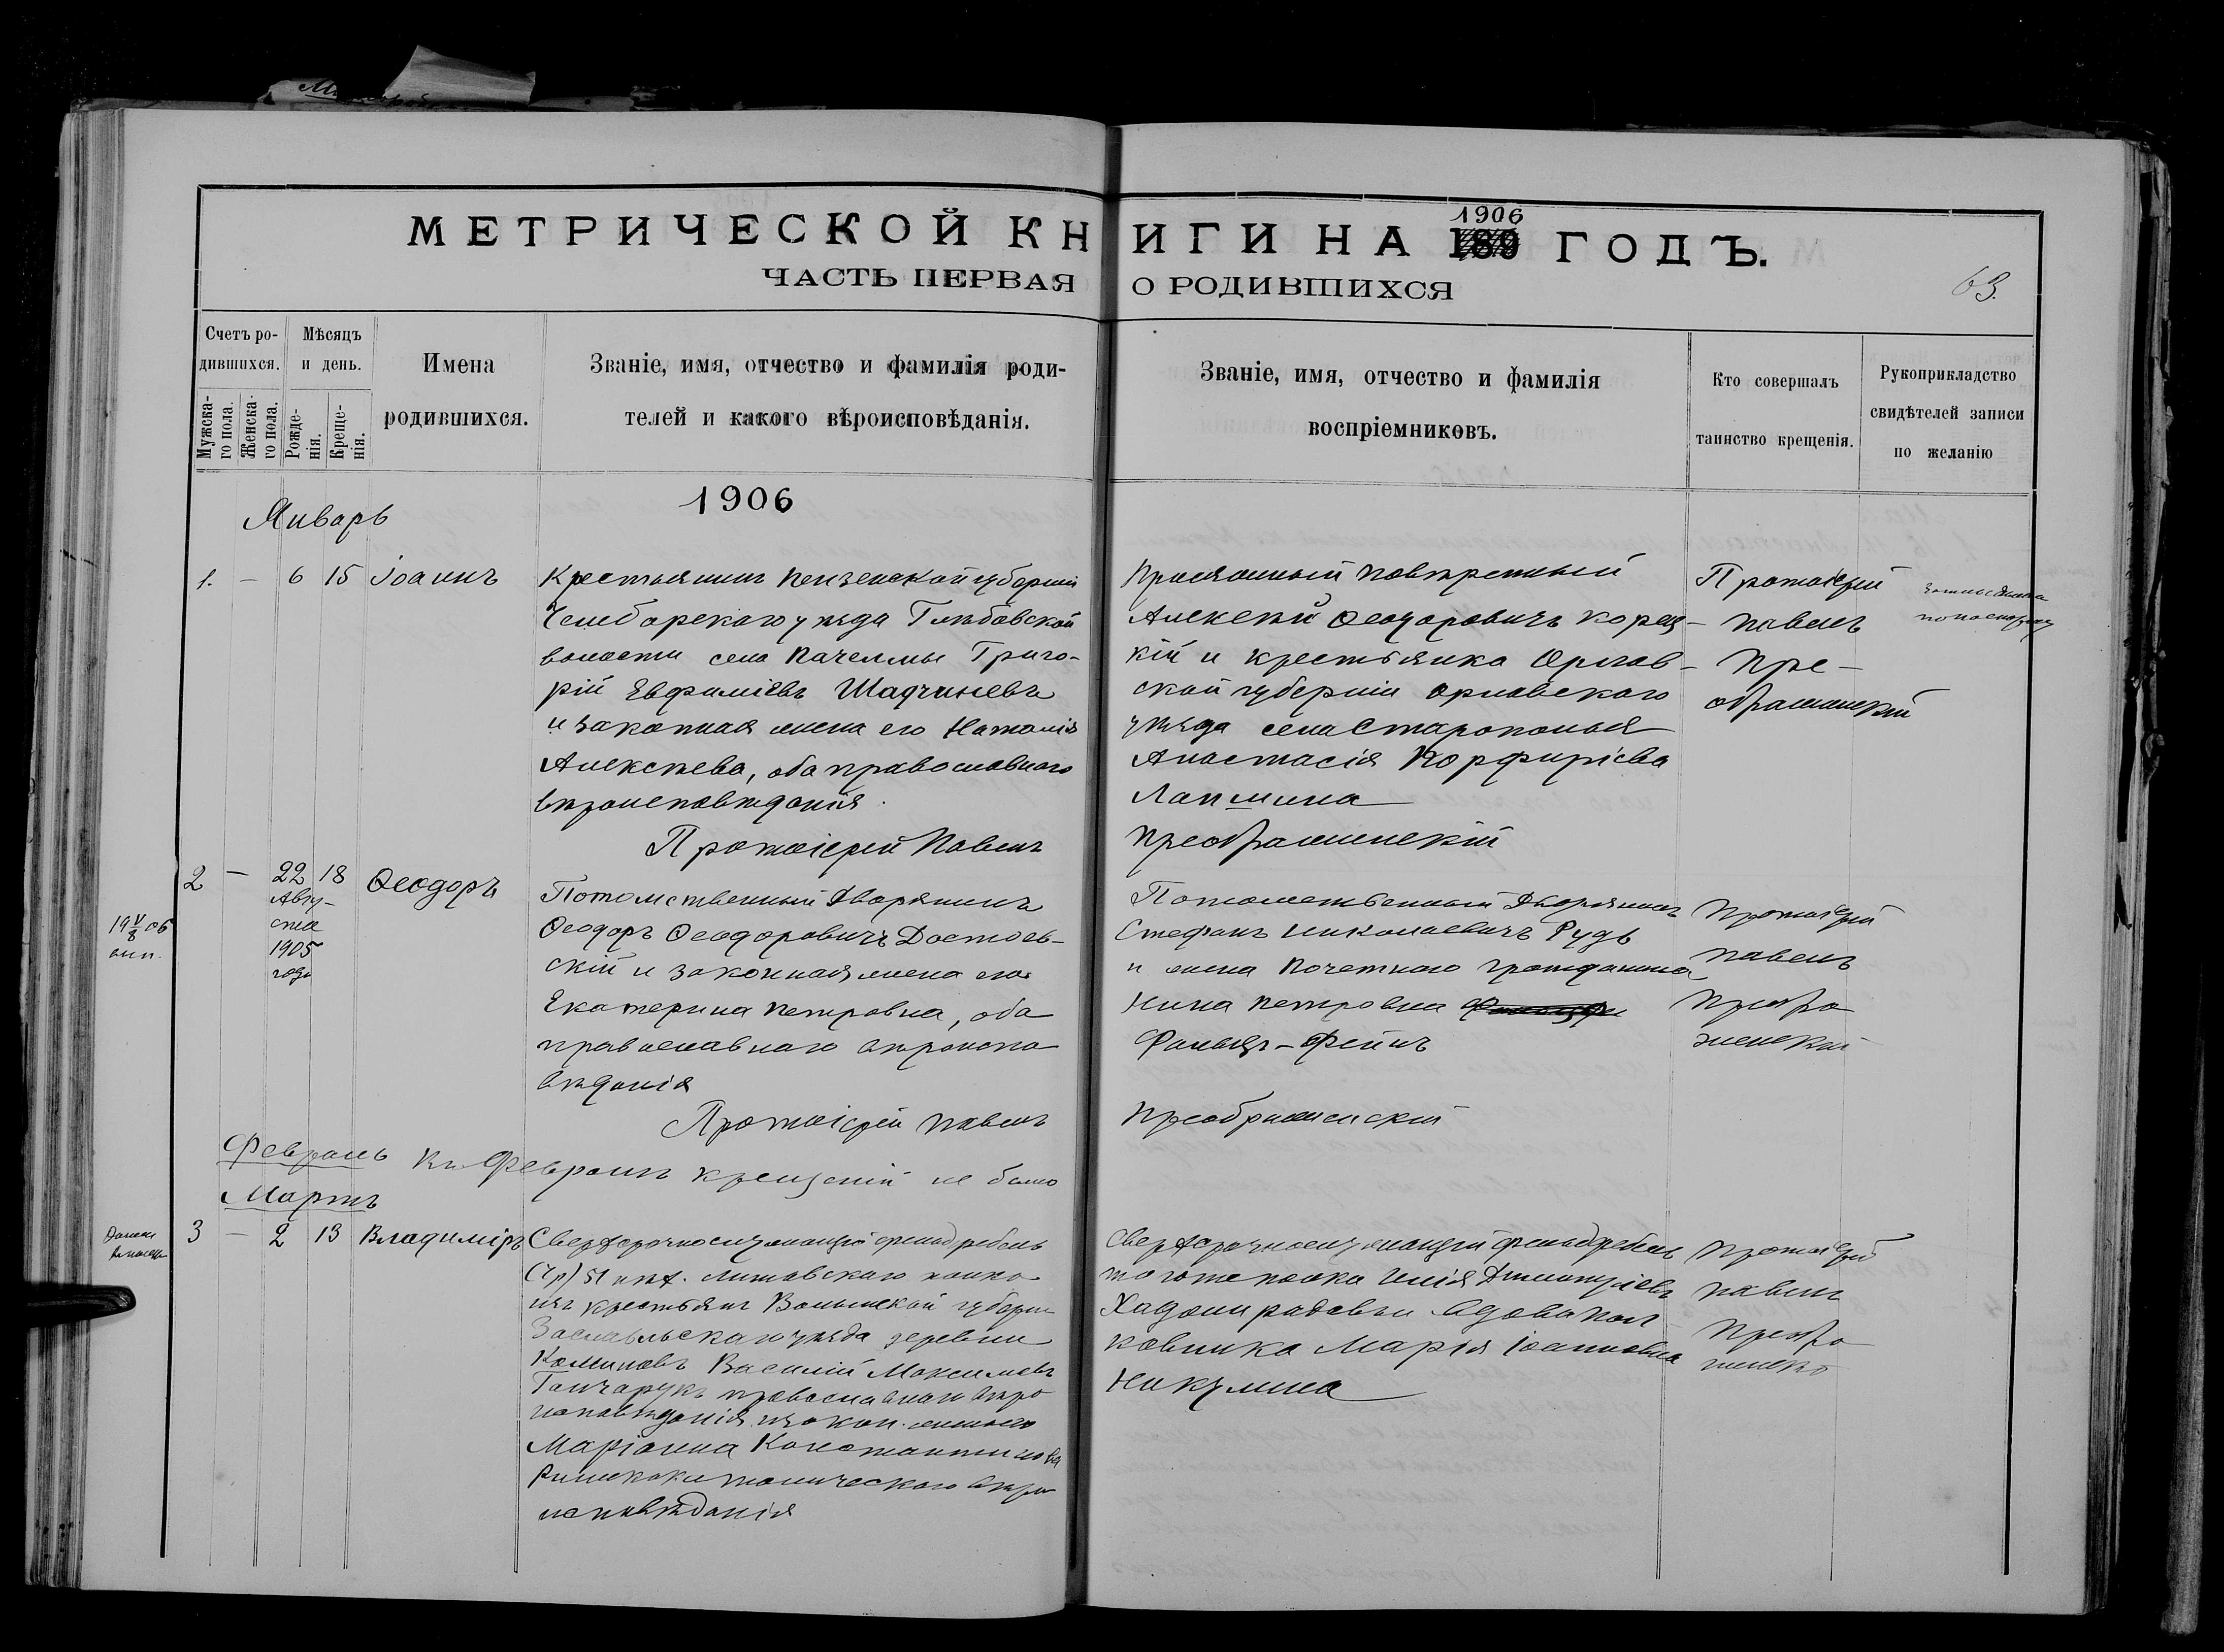 МЕТРИЧЕСКОЙ КНИГИ НА 1906 ГОДЪ.
ЧАСТЬ ПЕРВАЯ О РОДИВШИХСЯ
63.
Счетъ ро-
дившихся.
Мужска-
го пола.
Женска-
го пола.
Мѣсяцъ
и день.
Рожде-
нія.
Креще-
нія.
Имена
родившихся.
Званіе, имя, отчество и фамилія роди-
телей и какого вѣроисповѣданія.
Званіе, имя, отчество и фамилія
воспріемниковъ.
Кто совершалъ
таинство крещенія.
Рукоприкладство
свидѣтелей записи
по желанію
1906
Январь
1. — 6 15 Іоаннъ
Крестьянинъ Пензенской губерніи
Чембарскаго уѣзда Глѣбовской
волости села Пачелмы Григо-
рій Евфиміевъ
и законная жена его Наталія
Алексѣева, оба православнаго
вѣроисповѣданія.
Присяжный повѣренный
Алексѣй Ѳеодоровичъ
кій и крестьянка Орлов-
ской губерніи Орловскаго
уѣзда села Старополья
Анастасія Порфиріева
Лапшина
Протоіерей
Павелъ
Пре-
ображенскій
Протоіерей Павелъ Преображенскій
2 — 22 18 Ѳеодоръ
Авгу-
ста
1905
года
19 V/8 06
Потомственный Дворянинъ
Ѳеодоръ Ѳеодоровичъ Достоев-
скій и законная жена его
Екатерина Петровна, оба
православнаго вѣроиспо-
вѣданія
Потомственный Дворянинъ
Стефанъ Николаевичъ Рудь
и жена Почетнаго гражданина
Нина Петровна
Фальцъ-Фейнъ
Протоіерей
Павелъ
Преобра
женскій
Протоіерей Павелъ Преображенскій
Февраль Въ Февралѣ крещеній не было
Мартъ
3 — 2 13 Владиміръ
Сверхсрочнослужащій фельдфебель
51 пѣх. Литовскаго полка
изъ крестьянъ Волынской губерніи
Заславльскаго уѣзда деревни
Василій Максимовъ
Ганчарукъ православнаго вѣро
исповѣданія и закон. жена его
Маріанна Константинова
Римскокатолическаго вѣро
исповѣданія
Сверхсрочнослужащій фельдфебель
того же полка Илія Дмитріевъ
и вдова пол
ковника Марія Іоанновна
Никулина
Протоіерей
Павелъ
Преобра